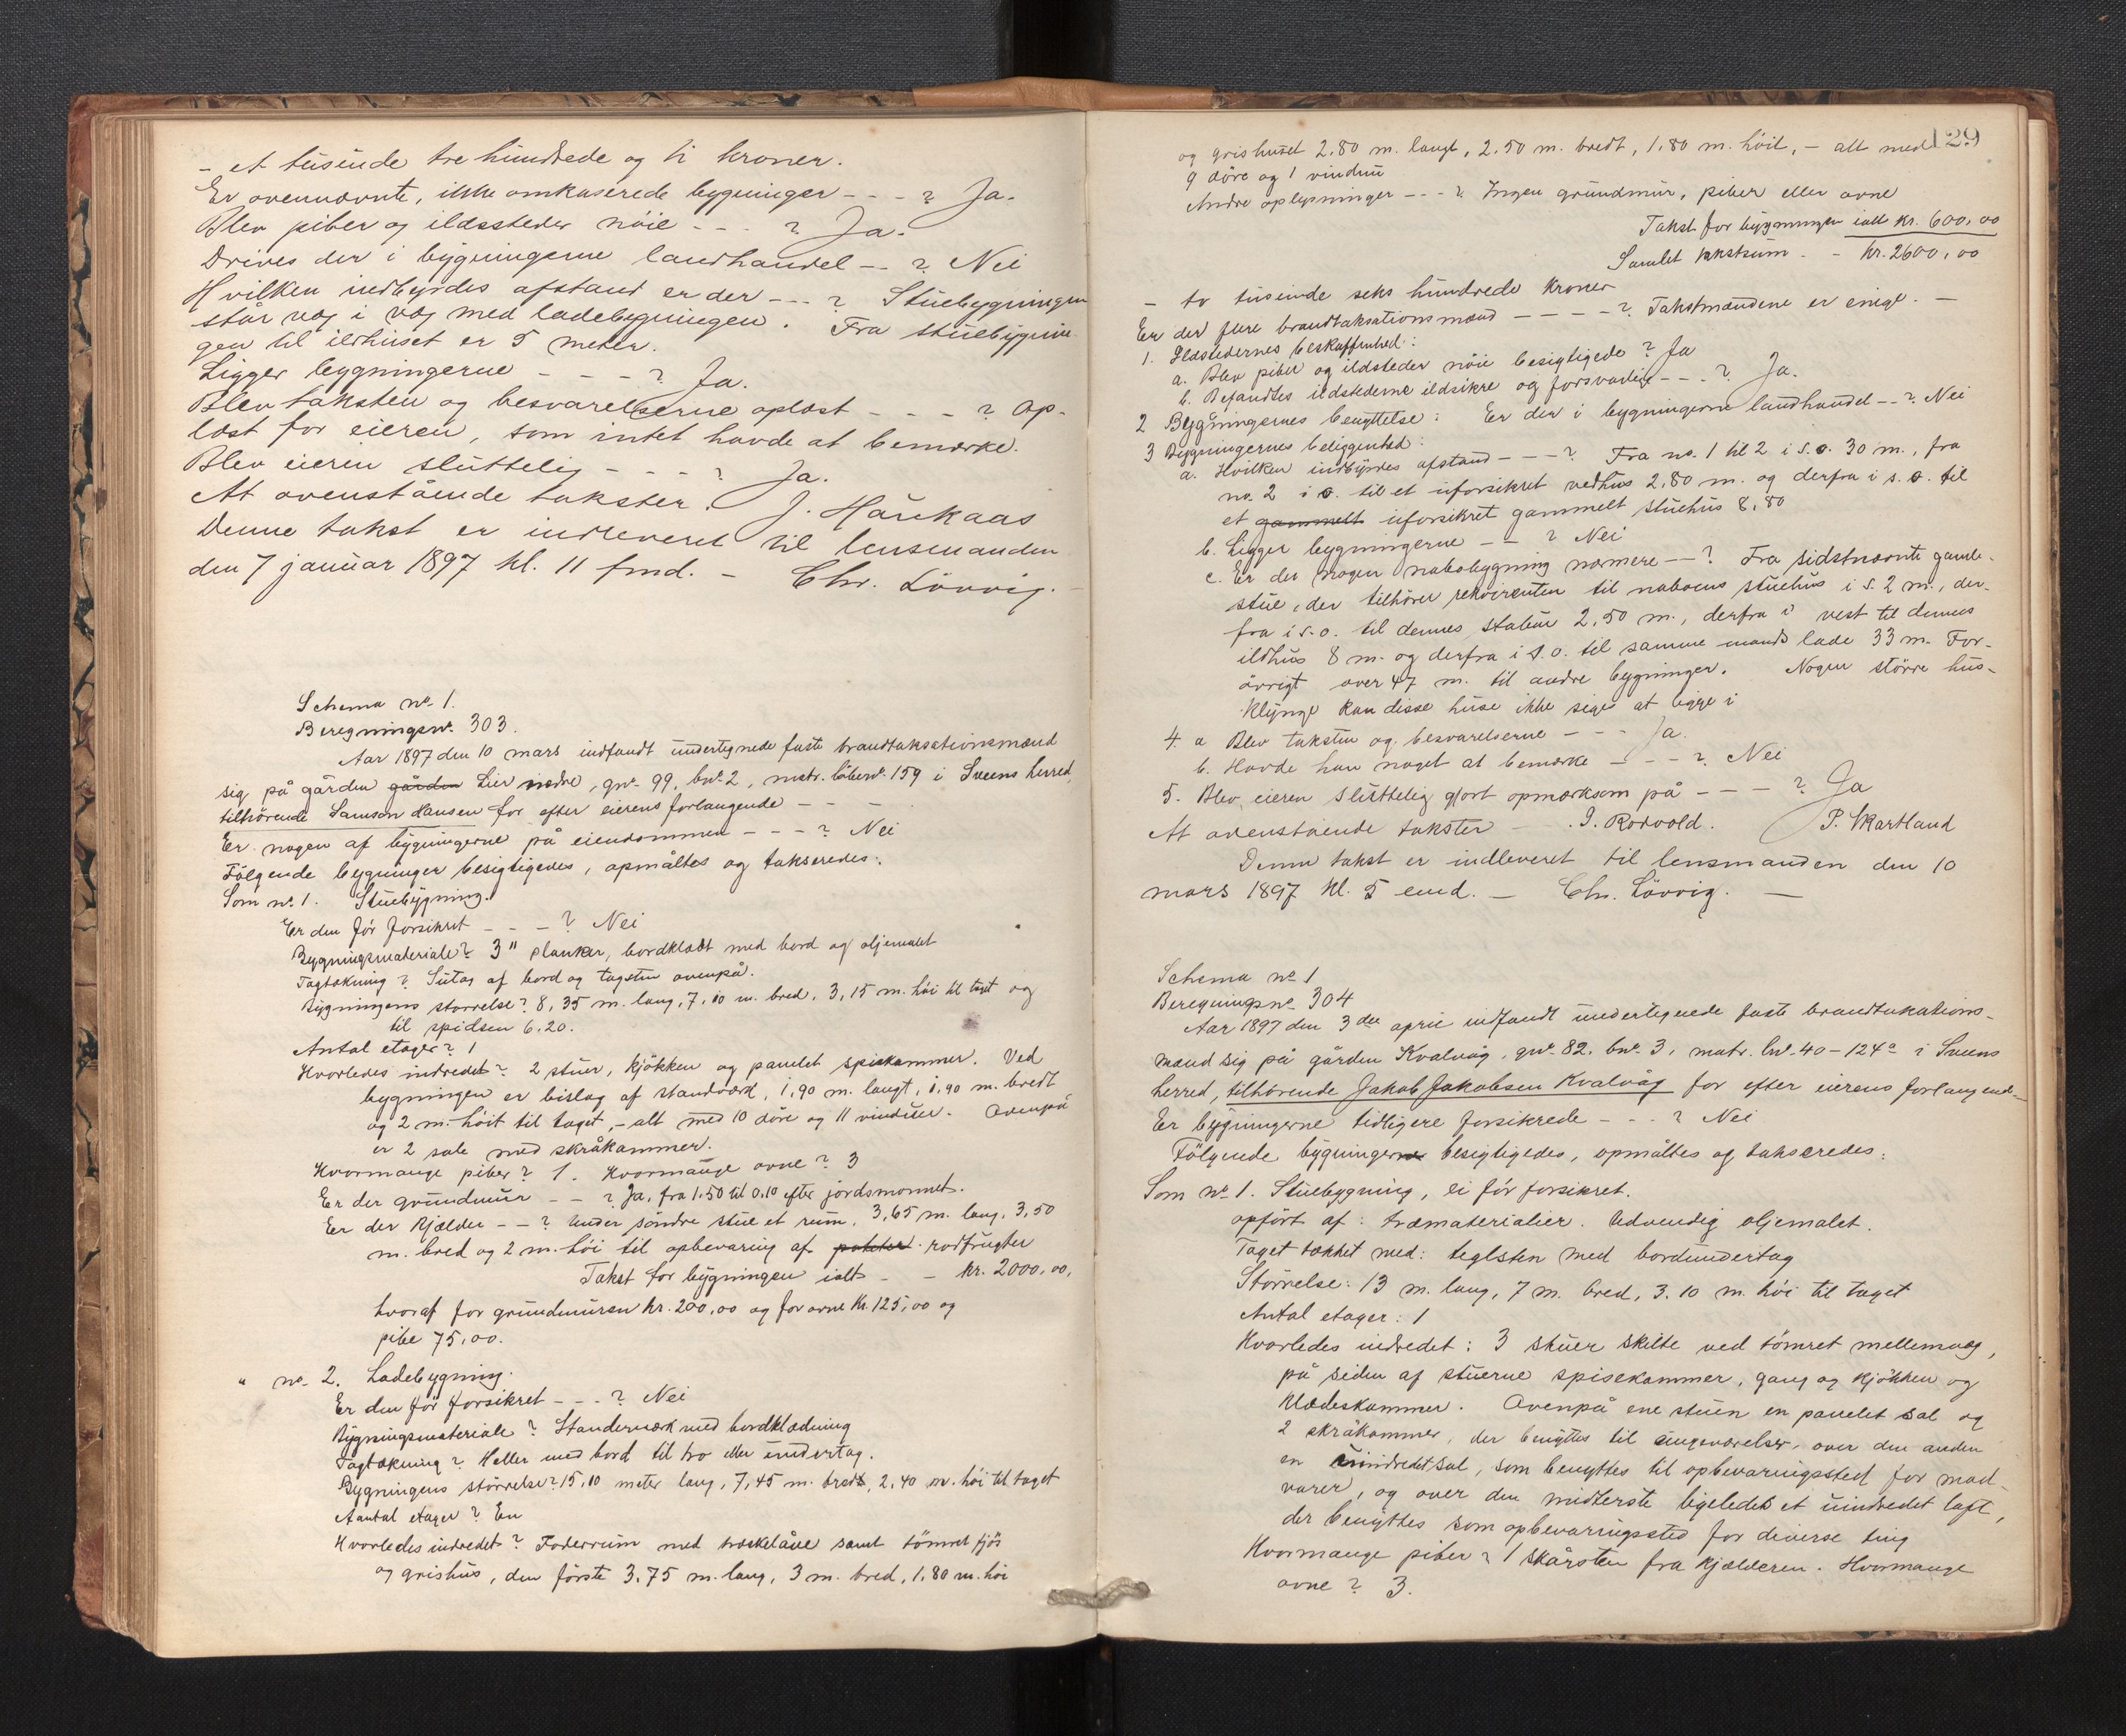 - et tusinde tre hundrede og ti kroner.
Er ovennævnte, ikke omkaserede bygninger - - - ? Ja.
Blev piber og ildssteder nøie - - - ? Ja.
Drives der i bygningerne landhandel - - ? Nei
Hvilken indbyrdes afstand er der - - - ? Stuebygningen
står væg i væg med ladebygningen. Fra stuebygnin-
gen til ildhuset er 5 meter.
Ligger bygningerne - - - - ? Ja.
Blev taksten og besvarelserne oplæst - - - ? Op-
læst for eieren, som intet havde at bemærke.
Blev eieren sluttelig - - - - ? Ja.
At ovenstående takster. J. Haukaas
Denne takst er indleveret til lensmanden
den 7 januar 1897 kl. 11 fmd. - Chr. Lövvig. -
Schema no. 1.
Beregningsno. 303.
Aar 1897 den 10 mars indfandt undertegnede faste brandtaksationsmænd
sig på gården gården Lier nedre, gno. 99, bno. 2, matr. löbeno. 159 i Sveens herred,
tilhörende Samson Hansen for efter eierens forlangende - - -
Er nogen af bygningerne på eiendommen - - - ? Nei
Fölgende bygninger besigtigedes, opmåltes og takseredes:
Som no. 1. Stuebygning.
Er den för forsikret - - - ? Nei
Bygningsmateriale? 3" planker, bordklædt med bord og oljemalet
Tagtækning? Sutag af bord og tagsten ovenpå.
Bygningens størrelse? 8,35 m. lang, 7,10 m. bred, 3,15 m. höi til taget og
til spidsen 6.20.
Antal etager? 1
Hvorledes indredet? 2 stuer, kjökken og panelet spiskammer. Ved
bygningen er bislag af standværk, 1,90 m. langt, 1,90 m. bredt
og 2 m. höit til taget, - alt med 10 döre og 11 vinduer. Ovenpå
er 2 sale med skråkammer.
Hvormange piber? 1. Hvormange ovne? 3
Er der grundmur - - ? Ja, fra 1.50 til 0.10 efter jordsmonnet.
Er der kjælder - - ? Under söndre stue et rum, 3,65 m. lang, 3,50
m. bred og 2 m. höi til opbevaring af poteter rodfrugter
Takst for bygningen ialt - - kr. 2000,00,
hvoraf for grundmuren kr. 200,00 og for ovne kr. 125,00 og
pibe 75,00.
" no. 2. Ladebygning.
Er den för forsikret - - - ? Nei
Bygningsmateriale? Standerværk med bordklædning
Tagtækning? Heller med bord til tro eller undertag.
Bygningens størrelse? 15,10 meter lang, 7,45 m. bredt, 2,40 m. höi til taget
Aantal etager? En
Hvorledes indredet? Foderrum med træskelåve samt tömret fjös
og grishus, den förste 3.75 m. lang, 3 m. bred, 1,80 m. höi
129
og grishuset 2,80 m. langt, 2,50 m. bredt, 1,80 m. höit, - alt med
9 döre og 1 vindue
Andre oplysninger - - - ? Ingen grundmur, piber eller ovne
Takst for bygningen ialt kr. 600,00
Samlet takstsum - - kr. 2600,00
- to tusinde seks hundrede kroner
Er der flere brandtaksationsmænd - - - - ? Takstmændene er enige. -
1. Ildstedernes beskaffenhed:
a. Blev piber og ildsteder nöie besigtigede? Ja
b. Befandtes ildstederne ildsikre og forsvarlige - - - ? Ja.
2 Bygningernes benyttelse: Er der i bygningerne landhandel - - ? Nei
3 Bygningernes beliggenhed:
a. Hvilken indbyrdes afstand - - - ? Fra no. 1 til 2 i s.o. 30 m., fra
no. 2 i o. til et uforsikret vedhus 2,80 m. og derfra i s.o. til
et gammelt uforsikret gammelt stuehus 8,80
b. Ligger bygningerne - - ? Nei
c. Er der nogen nabobygning nærmere - - ? Fra sidstnævnte gamle-
stue, der tilhörer rekvirenten til naboens stuehus i s. 2 m., der-
fra i s.o. til dennes stabur 2,50 m., derfra i vest til dennes
ildhus 8 m. og derfra i s.o. til samme mands lade 33 m. For-
övrigt over 47 m. til andre bygninger. Nogen större hus-
klynge kan disse huse ikke siges at ligge i
4. a Blev taksten og besvarelserne - - - Ja.
b. Havde han noget at bemærke - - - ? Nei
5. Blev eieren sluttelig gjort opmærksom på - - - ? Ja
At ovenstående takster - J. Rödvold. P. Skartland
Denne takst er indleveret til lensmanden den 10
mars 1897 kl. 5 emd. - Chr. Lövvig. -
Schema no. 1
Beregningsno. 304
Aar 1897 den 3die april indfandt undertegnede faste brandtaksations-
mænd sig på gården Kvalvåg, gno. 82, bno. 3, matr. lno. 40 - 124a i Sveens
herred, tilhörende Jakob Jakobsen Kvalvåg for efter eierens forlangende -
Er bygningerne tidligere forsikrede - - - ? Nei
Fölgende bygningerne besigtigedes, opmåltes og takseredes:
Som no. 1. Stuebygning, ei för forsikret.
opfört af: træmaterialier. Udvendig oljemalet.
Taget tækket med: teglsten med bordundertag
Större lse: 13 m. lang, 7 m. bred, 3.10 m. höi til taget
Antal etager: 1
Hvorledes indredet: 3 stuer skilte ved tömret mellemvæg,
på siden af stuerne spisekammer, gang og kjökken og
klædeskammer. Ovenpå ene stuen en panelet sal og
2 skråkammer, der benyttes til sengeværelser, over den anden
en uindredet sal, som benyttes til opbevaringssted for mad-
varer, og over den midterste ligeledes et uindredet loft,
der benyttes som opbevaringssted for diverse ting
Hvormange piber? 1 skårsten fra kjælderen. Hvormange
ovne? 3.